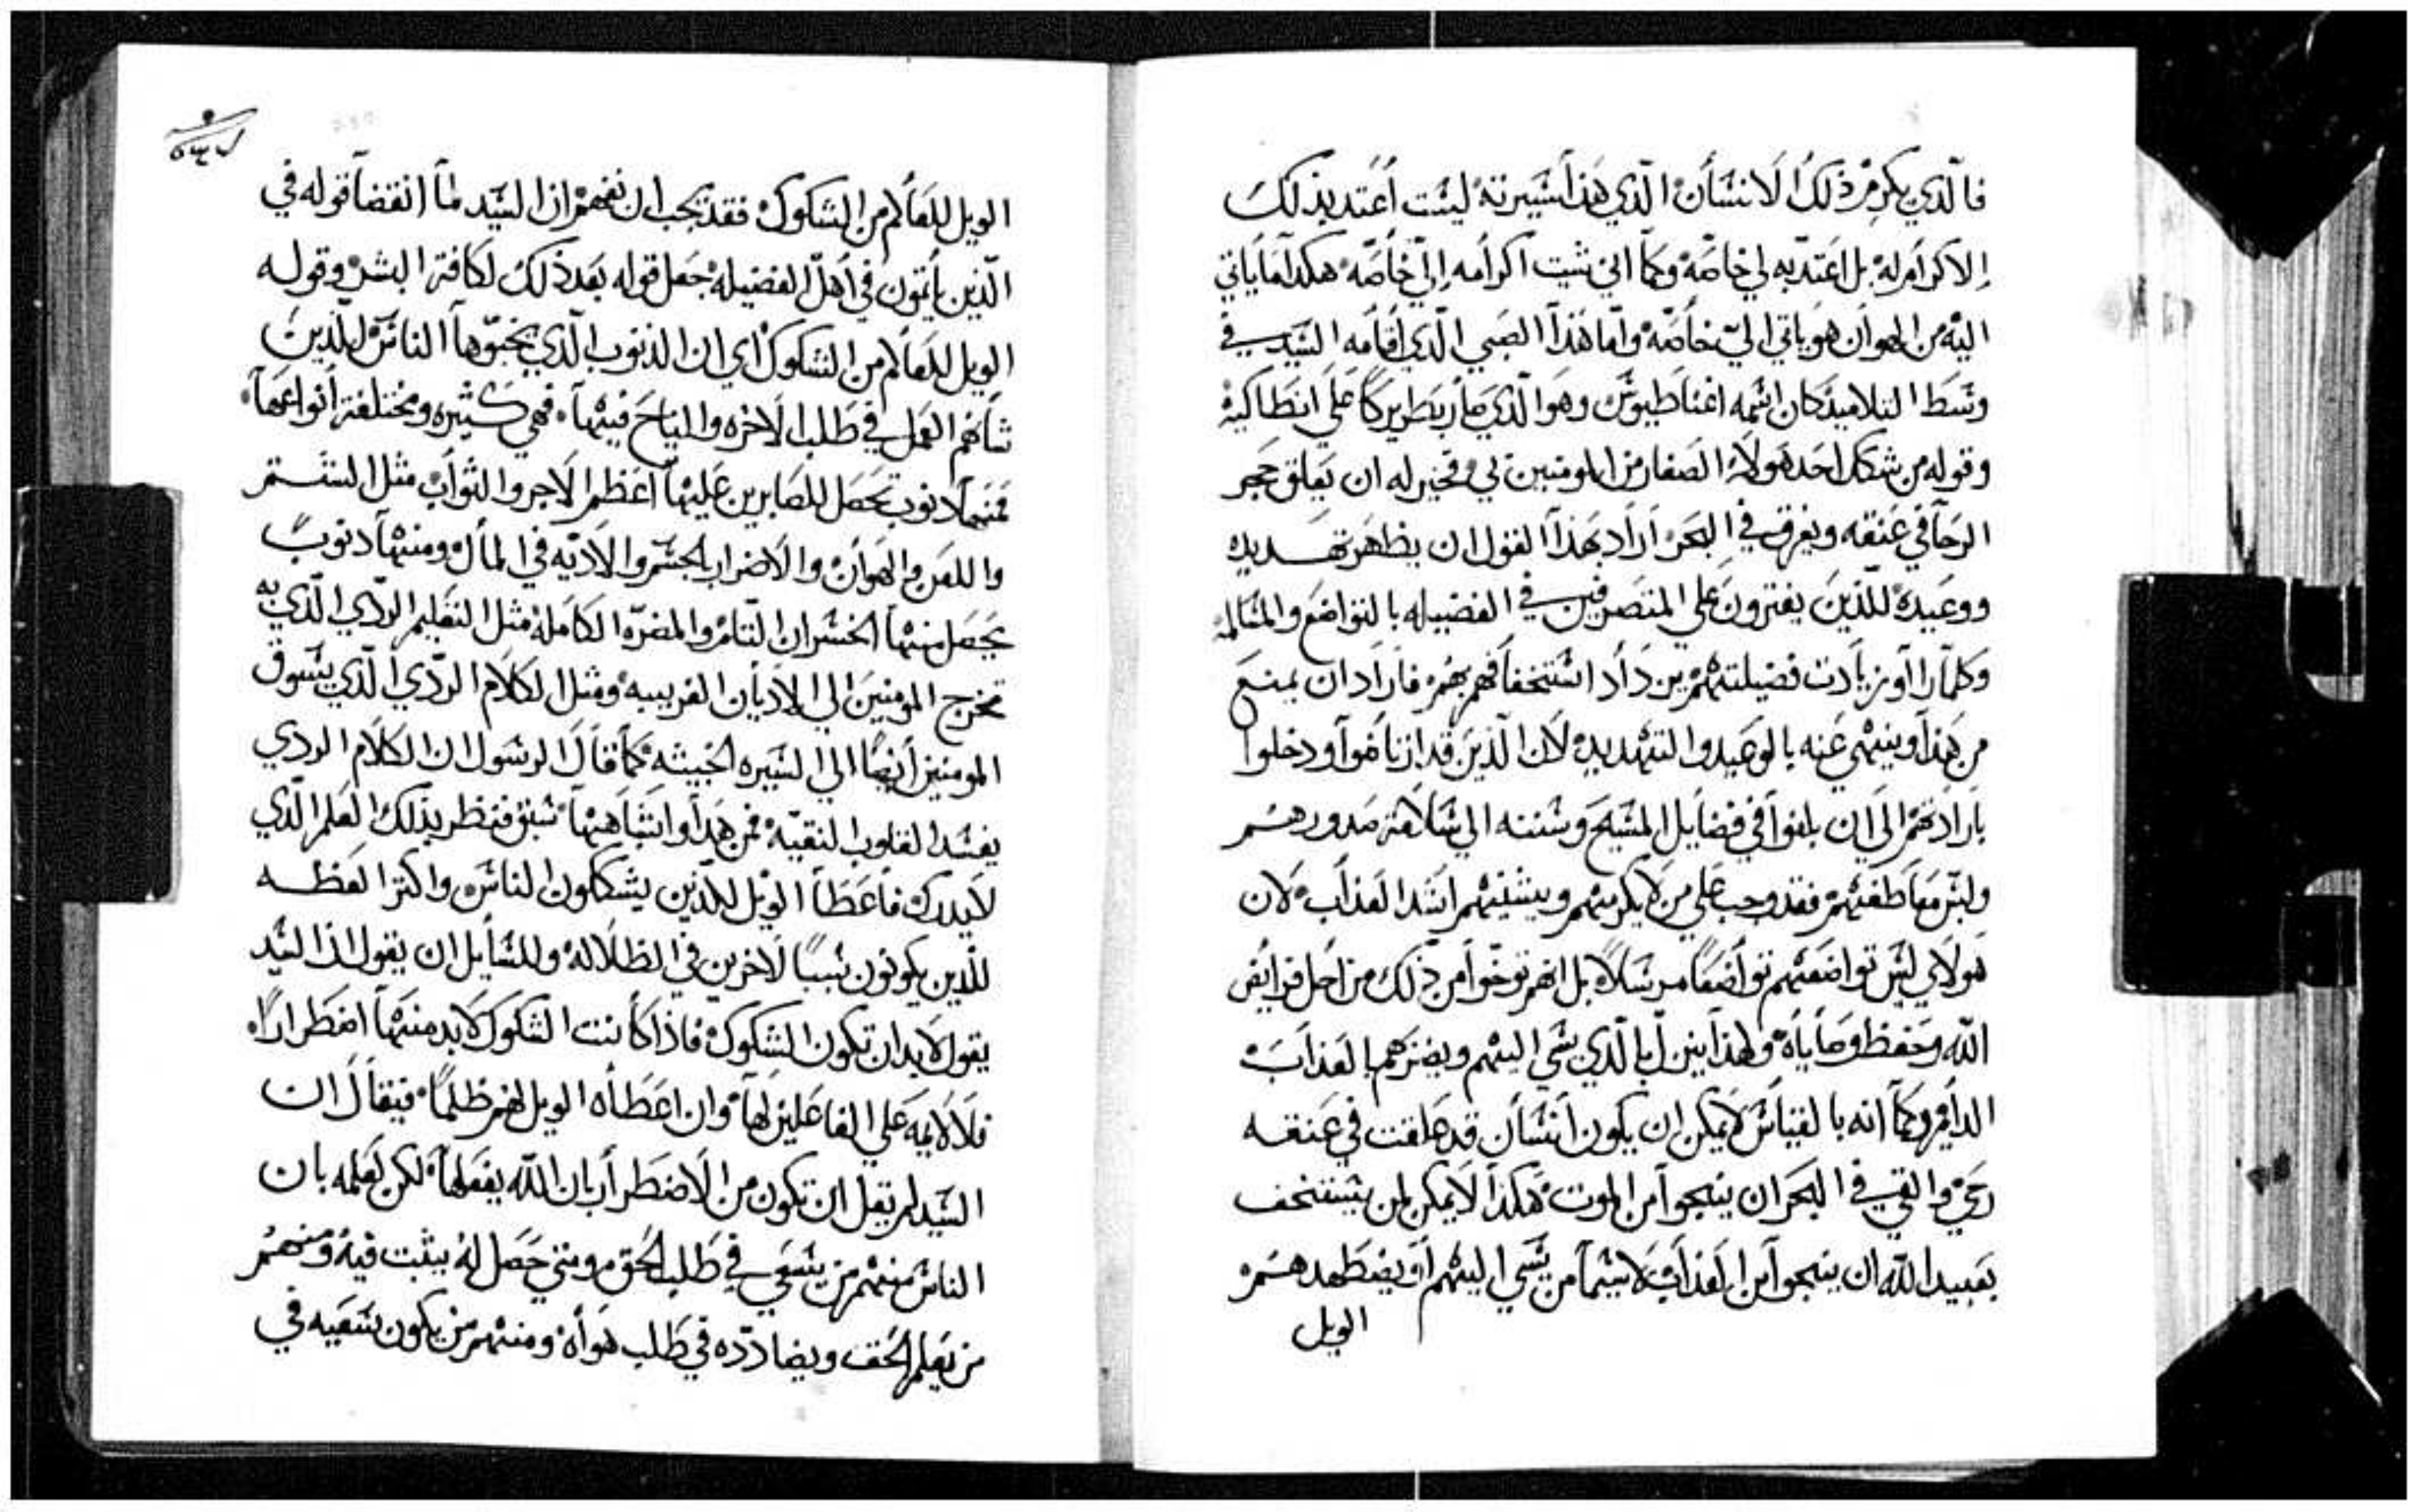 فالذي يكرم ذلك الانسان الذي هذا سيرته ليست اعتد بذلك
الاكرام له بل اعتد به لي خاصه وكما اني شيت اكرامه الي خاصه هكدا ما ياتي
اليه من الهوان هو ياتي الي خاصه واما هذا الصبي الذي اقامه السيد في
وسط التلاميد كان اسمه اغناطيوس وهو الذي صار بطريركا على انطاكيه
وقوله من شكك احد هولاء الصغار من المومنين بي فخير له ان يعلق حجر
الرحا في عنقه ويغرق في البحر اراد بهذا القول ان يظهر تهديده
ووعيده للذين يفترون علي المتصرفين في الفضيله بالتواضع والمسالمه
وكلما راآو زيادت فضيلتهم يزداد استخفافهم بهم فاراد ان يمنع
من هذا وينهي عنه بالوعيد والتهديد لان الذين قد ارتاضوا ودخلوا
بارادتهم الى ان بلغوا في فضايل المسيح وسننه الي سلامة صدورهم
ولين معاطفهم فقد وجب على من لا يكرمهم ويشينهم اشد العذاب لان
هولاي ليس تواضعهم تواضعا مرسلا بل انهم توخوا من ذلك من اجل فرايض
الله وحفظ وصاياه ولهذا ينزل بالذي يسي اليهم ويضرهم العذاب
الدايم وكما انه بالقياس لا يمكن ان يكون انسان قد علقت في عنقه
رحي والقي في البحر ان ينجوا من الموت هكذا لا يمكن لمن يستخف
بعبيد الله ان ينجوا من العذاب لا سيما من يسي اليهم او يضطهدهم
الويل
الويل للعالم من الشكوك فقد يجب ان نفهم ان السيد لما انقضا قوله في
الذين ياتون في اهل الفضيله جعل قوله بعد ذلك لكافة البشر وقوله
الويل للعالم من الشكوك اي ان الذنوب الذي يخبوها الناس للذين
شانهم العمل في طلب الاخره والمياح فيها فهي كثيره ومختلفة انواعها
فمنها دنوب تحصل للصابرين عليها اعظم الاجر والثواب مثل الشتم
واللعن والهوان والاضرار بالجسم والاديه في المال ومنها دنوب
يحصل منها الخسران التام والمضره الكامله مثل التعليم الردي الذي به
تخرج المومنين الي الاديان الغريبه ومثل الكلام الردي الذي يسوق
المومنين ايضا الي السيره الخبيثه كما قال الرسول ان الكلام الردي
يفسد القلوب النقيه فمن هدا واشباهها سبق فنظر بذلك العلم الذي
لا يدرك فاعطا الويل للذين يشككون الناس واكثر العظه
للذين يكونون سببا لاخرين في الظلاله وللسايل ان يقول اذا السيد
يقول لا بد ان تكون الشكوك فاذا كانت الشكوك لا بد منها اضطرارا
فلا لايمه علي الفاعلين لها وان اعطاه الويل لهم ظلما فيقال ان
السيد لم يقل ان تكون من الاضطرار بان الله يفعلها لكن لعلمه بان
الناس منهم من يسعي في طلب الحق ومتي حصل له يثبت فيه ومنهم
من يعلم الحق ويضادده في طلب هواه ومنهم من يكون سعيه في